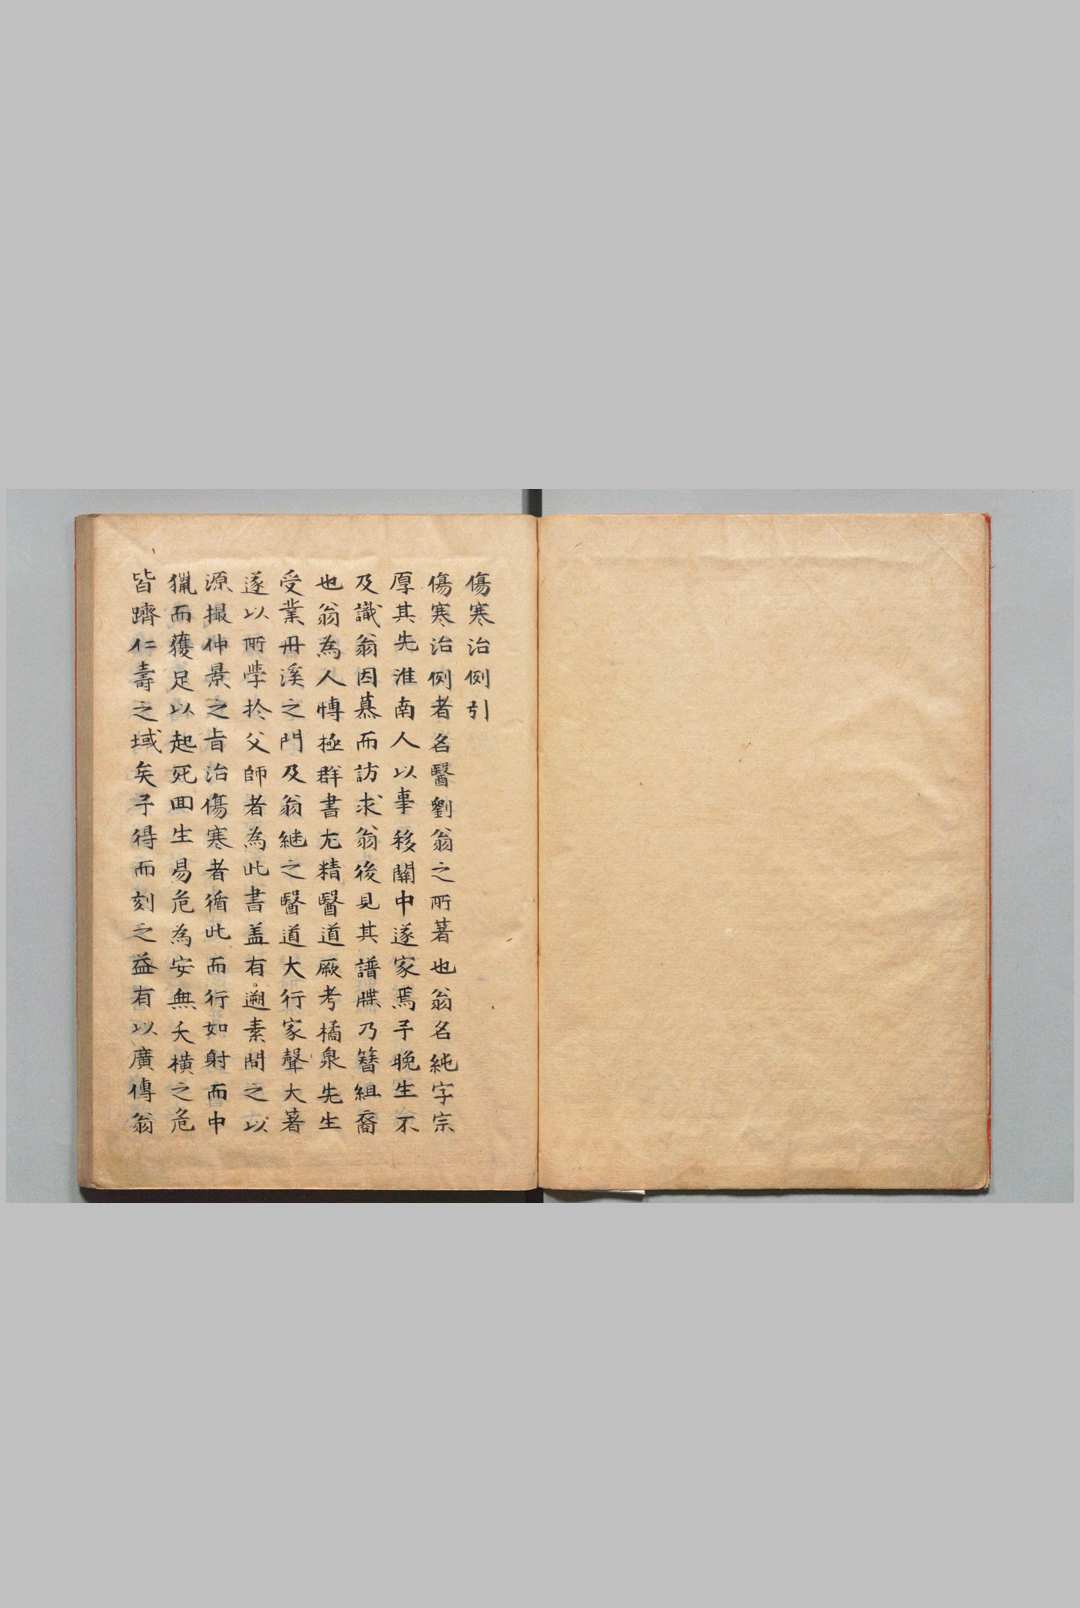 傷寒治例引
傷寒治例者名醫劉翁之所著也翁名純字宗
厚其先淮南人以事移關中遂家焉予晚生不
及識翁因慕而訪求翁後見其譜牒乃簪組裔
也翁為人慱極群書尤精醫道厥考橘泉先生
受業丹溪之門及翁継之醫道大行家聲大著
遂以所學扵父師者為此書盖有遡素問之以
源撮仲景之旨治傷寒者循此而行如射而中
獵而獲足以起死囬生易危為安無夭橫之危
皆躋仁壽之域矣予得而刻之益有以廣傳翁